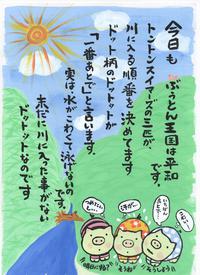 今日も ぶうとん王国は平和
です。
トントンスイマーズの三匹が、
川に入る順番を決めてます
ドット柄のドットットが
「一番あとで」と言います。
実は水がこわくて泳げないの
です。
未だに川に入った事がない
ドットットなのです
そうしよう
そうね
明日にね?